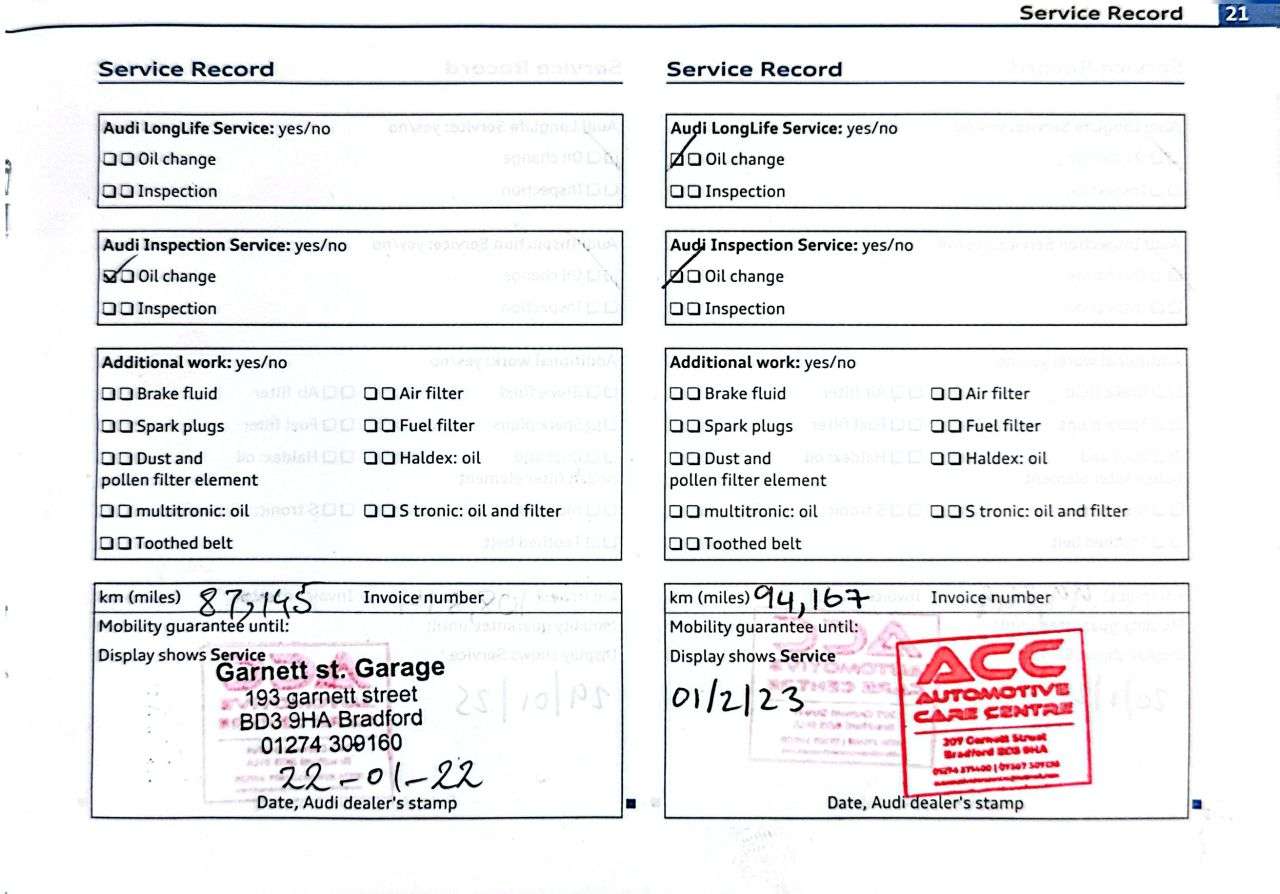 Service Record 21
Service Record
Audi LongLife Service: yes/no
Oil change
Inspection
Audi Inspection Service: yes/no
Oil change
Inspection
Additional work: yes/no
Brake fluid Air filter
Spark plugs Fuel filter
Dust and Haldex: oil
pollen filter element
multitronic: oil S tronic: oil and filter
Toothed belt
km (miles) 87,145 Invoice number
Mobility guarantee until:
Display shows Service
Garnett st. Garage
193 garnett street
BD3 9HA Bradford
01274 309160
22-01-22
Date, Audi dealer's stamp
Service Record
Audi LongLife Service: yes/no
Oil change
Inspection
Audi Inspection Service: yes/no
Oil change
Inspection
Additional work: yes/no
Brake fluid Air filter
Spark plugs Fuel filter
Dust and Haldex: oil
pollen filter element
multitronic: oil S tronic: oil and filter
Toothed belt
km (miles) 94,167 Invoice number
Mobility guarantee until:
Display shows Service
01/2/23
ACC
AUTOMOTIVE
CARE CENTRE
207 Garnett Street
Bradford BD3 9HA
Date, Audi dealer's stamp